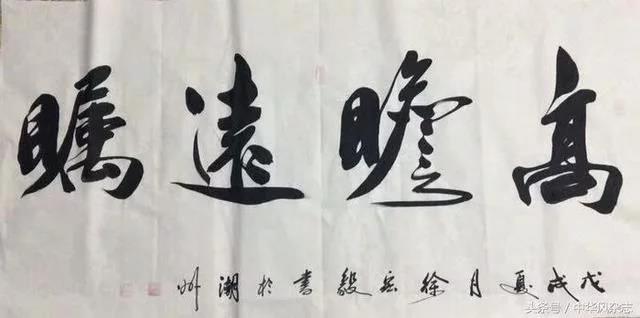 高瞻遠瞩
戊戌夏月徐岳毅書於湖州
头条号 / 中华风杂志